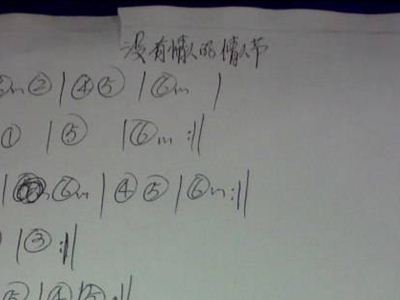 没有情人的情人节
m ② | ④ ⑤ | ⑥m |
① | ⑤ | ⑥m :||
| m ⑥m | ④ ⑤ | ⑥m :||
| ③ :||
⑤ | ④ | ⑤ :||